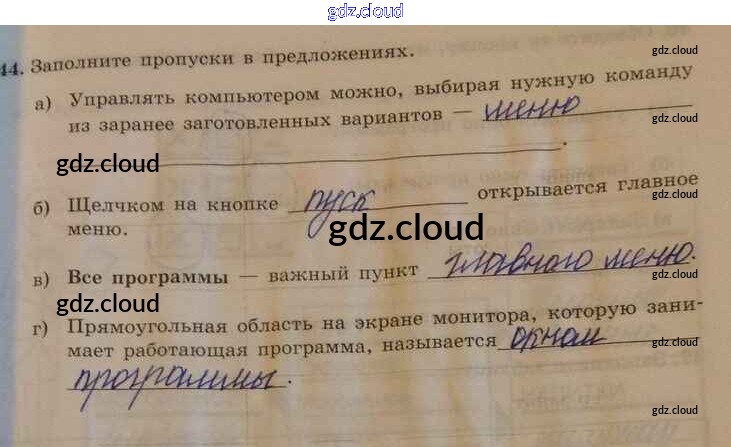 gdz.cloud
44. Заполните пропуски в предложениях.
gdz.cloud
а) Управлять компьютером можно, выбирая нужную команду
из заранее заготовленных вариантов — меню
gdz.cloud
gdz.cloud
.
б) Щелчком на кнопке пуск открывается главное
gdz.cloud
меню.
gdz.cloud
в) Все программы — важный пункт главного меню.
gdz.cloud
gdz.cloud
г) Прямоугольная область на экране монитора, которую зани-
мает работающая программа, называется окном
gdz.cloud
программы.
gdz.cloud